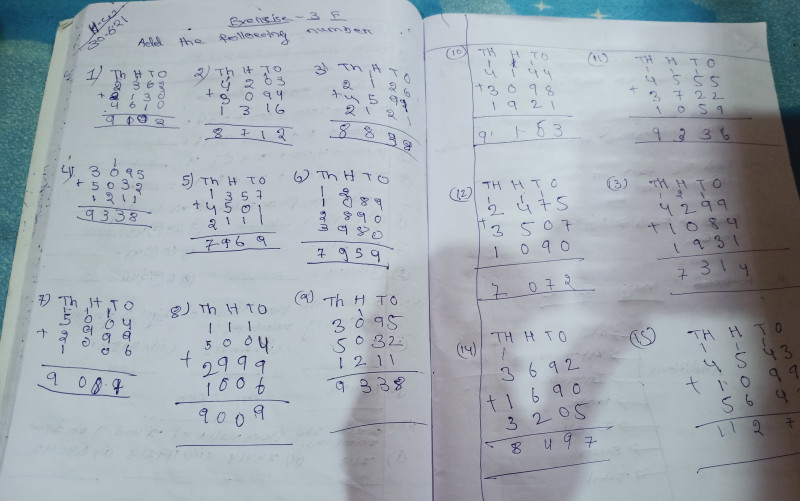 H.W
30.6.21
Exercise - 3 E
Add the following number
1) Th H T O
4 6 1 0
2) Th H T O
4 2 0 3
+ 3 0 9 4
1 3 1 6
8 7 1 2
3) Th H T O
2 1 2 6
2 1 2 1
4) 1
3 0 9 5
+ 5 0 3 2
1 2 1 1
9 3 3 8
5) Th H T O
1 3 5 7
+ 4 5 0 1
2 1 1 1
7 9 6 9
6) Th H T O
1 2
1 0 8 9
2 8 9 0
3 9 8 0
7 9 5 9
7) Th H T O
8) Th H T O
1 1 1
5 0 0 4
+ 2 9 9 9
1 0 0 6
9 0 0 9
(9) Th H T O
1
3 0 9 5
5 0 3 2
1 2 1 1
9 3 3 8
(10) TH H T O
4 1 4 4
+ 3 0 9 8
1 9 2 1
(11) TH H T O
4 5 5 5
+ 3 7 2 2
1 0 5 9
(12) TH H T O
1 1
2 4 7 5
+ 3 5 0 7
1 0 9 0
7 0 7 2
(13) TH H T O
1 2 1
4 2 9 9
+ 1 0 8 4
1 9 3 1
7 3 1 4
(14) TH H T O
1
3 6 9 2
+ 1 6 9 0
3 2 0 5
8 4 9 7
(15) TH H T O
4 5 4 3
+ 1 0 9 9
5 6 4
1 1 2 7